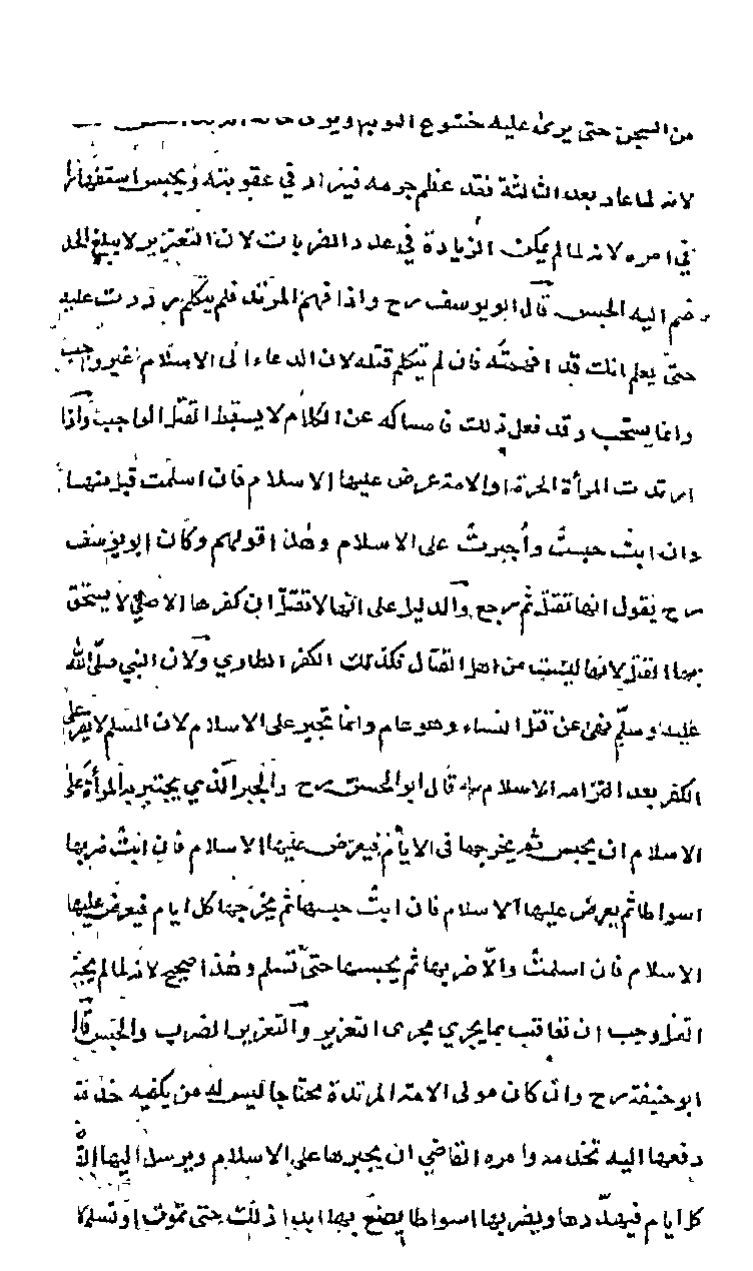 من السجن حتى يرى عليه خشوع التوبة ويرى
لانه لما عاد بعد الثالثة فقد عظم جرمه فيزاد في عقوبته ويحبس
في امره لانه لما لم يمكن الزيادة في عدد الضربات لان التعزير لا يبلغ الحد
ضم اليه الحبس قال ابو يوسف رح واذا فهم المرتد فلم يتكلم رددت عليه
حتى يعلم انك قد افهمته فان لم يتكلم قتله لان الدعاء الى الاسلام غير واجب
وانما يستحب وقد فعل ذلك فامساكه عن الكلام لا يسقط القتل الواجب واذا
ارتدت المرأة الحرة او الامة عرض عليها الاسلام فان اسلمت قبل منها
وان ابت حبست وأجبرت على الاسلام وهذا قولهم وكان ابو يوسف
رح يقول انها تقتل ثم رجع والدليل على انها لا تقتل ان كفرها الاصلي لا يستحق
بهذا القتل لانها ليست من اهل القتال فكذلك الكفر الطاري ولان النبي صلى الله
عليه وسلم نهى عن قتل النساء وهو عام وانما تجبر على الاسلام لان المسلم لا يقر على
الكفر بعد التزامه الاسلام قال ابو الحسن رح والجبر الذي يجتبر به المرأة على
الاسلام ان يحبس ثم يخرجها في الايام فيعرض عليها الاسلام فان ابت ضربها
اسواطا ثم يعرض عليها الاسلام فان ابت حبسها ثم يخرجها كل ايام فيعرض عليها
الاسلام فان اسلمت والا ضربها ثم يحبسها حتى تسلم وهذا صحيح لانه لما لم يجب
القتل وجب ان تعاقب بما يجري مجرى التعزير والتعزير الضرب والحبس قال
ابو حنيفة رح وان كان مولى الامة المرتدة محتاجا ليس له من يكفيه خدمته
دفعها اليه تخدمه وامره القاضي ان يجبرها على الاسلام ويرسل اليها
كل ايام فيهددها ويضربها اسواطا يصنع بها ابدا ذلك حتى تموت او تسلم